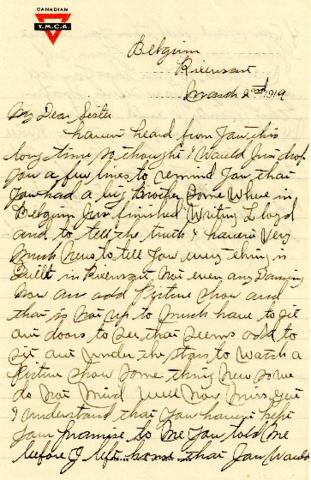 CANADIAN
Y.M.C.A.
Belgium
Rixensart
March 2nd 1919
My Dear Sister
haven't heard from You this
long time so thought I Would Just drop
You a few lines to remind You that
You had a big Brother Some Where in
Belgium Just finished Writing Lloyd
and to tell the truth I haven't Very
Much News to tell You every thing is
Quiet in Rixensart Not even any Dancing
Now an odd Picture Show and
that is Not up to Much have to sit
out doors to See that Seems odd to
Sit out under the Stars to Watch a
Picture Show Some thing New so we
do Not Mind Well Now Miss
I understand that You haven't kept
Your Promise to Me You told Me
before I left home that You Would